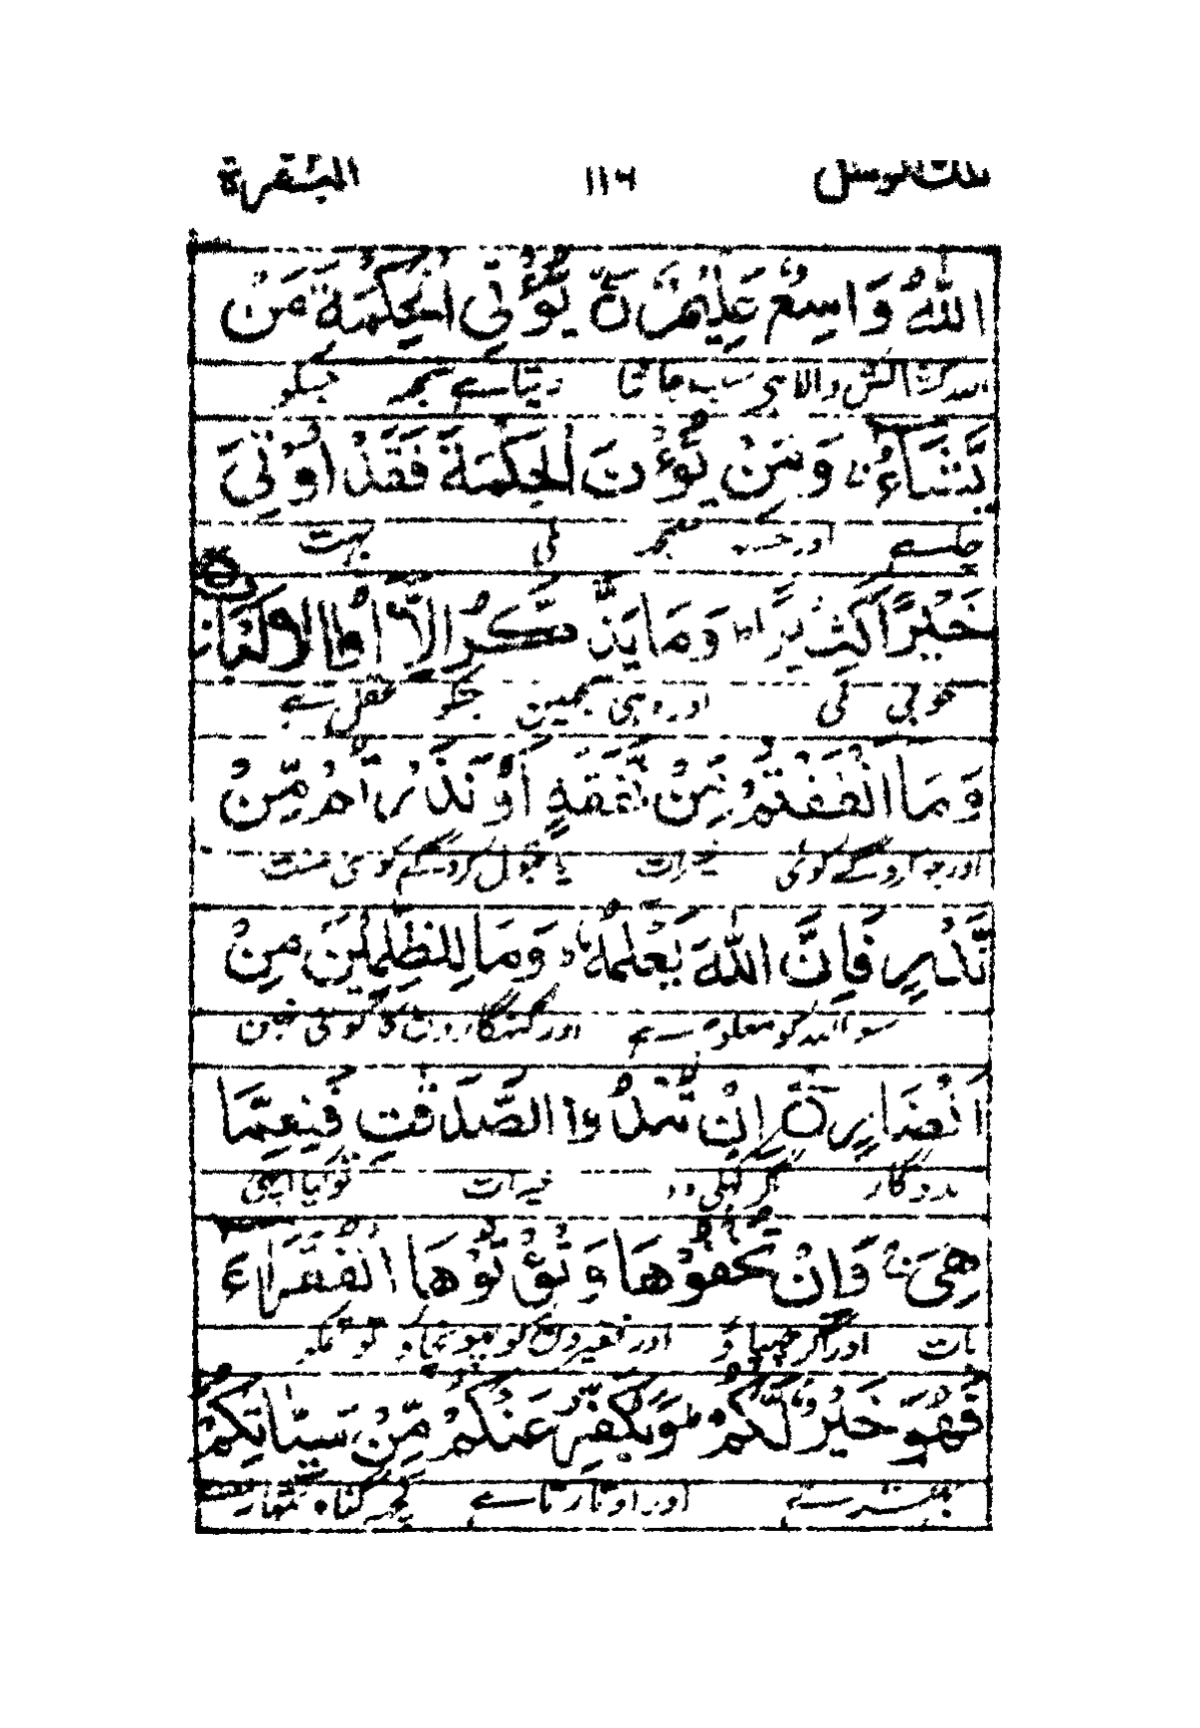 تلك الرسل ١١٦ البقرة
اللهُ وَاسِعٌ عَلِيْمٌ يُّؤْتِي الْحِكْمَةَ مَنْ
الله کشایش والا ہی سب جانتا دیتا ہے سمجھ جسکو
يَّشَآءُ وَمَنْ يُّؤْتَ الْحِكْمَةَ فَقَدْ اُوْتِيَ
چاہے اور جسکو سمجھ ملی بہت
خَيْرًا كَثِيْرًا ط وَمَا يَذَّكَّرُ اِلَّا اُولُوا الْاَلْبَابِ
خوبی ملی اور وہی سمجھین جنکو عقل ہے
وَمَا اَنْفَقْتُمْ مِّنْ نَّفَقَةٍ اَوْ نَذَرْتُمْ مِّنْ
اور جو کروگے کوئی خیرات یا قبول کروگے کوئی منت
نَّذْرٍ فَاِنَّ اللهَ يَعْلَمُهٗ ط وَمَا لِلظّٰلِمِيْنَ مِنْ
سو الله کو معلوم ہے اور گنہگارون کا کوئی نہین
اَنْصَارٍ اِنْ تُبْدُوا الصَّدَقٰتِ فَنِعِمَّا
مددگار اگر کھلی دو خیرات تو کیا اچھی
هِيَ وَاِنْ تُخْفُوْهَا وَتُؤْتُوْهَا الْفُقَرَآءَ
بات اور اگر چھپاؤ اور فقیرون کو پہونچاؤ تو تمکو
فَهُوَ خَيْرٌ لَّكُمْ ط وَيُكَفِّرُ عَنْكُمْ مِّنْ سَيِّاٰتِكُمْ
بہتر ہے اور اوتارتا ہے کچھ گناہ تمہارے